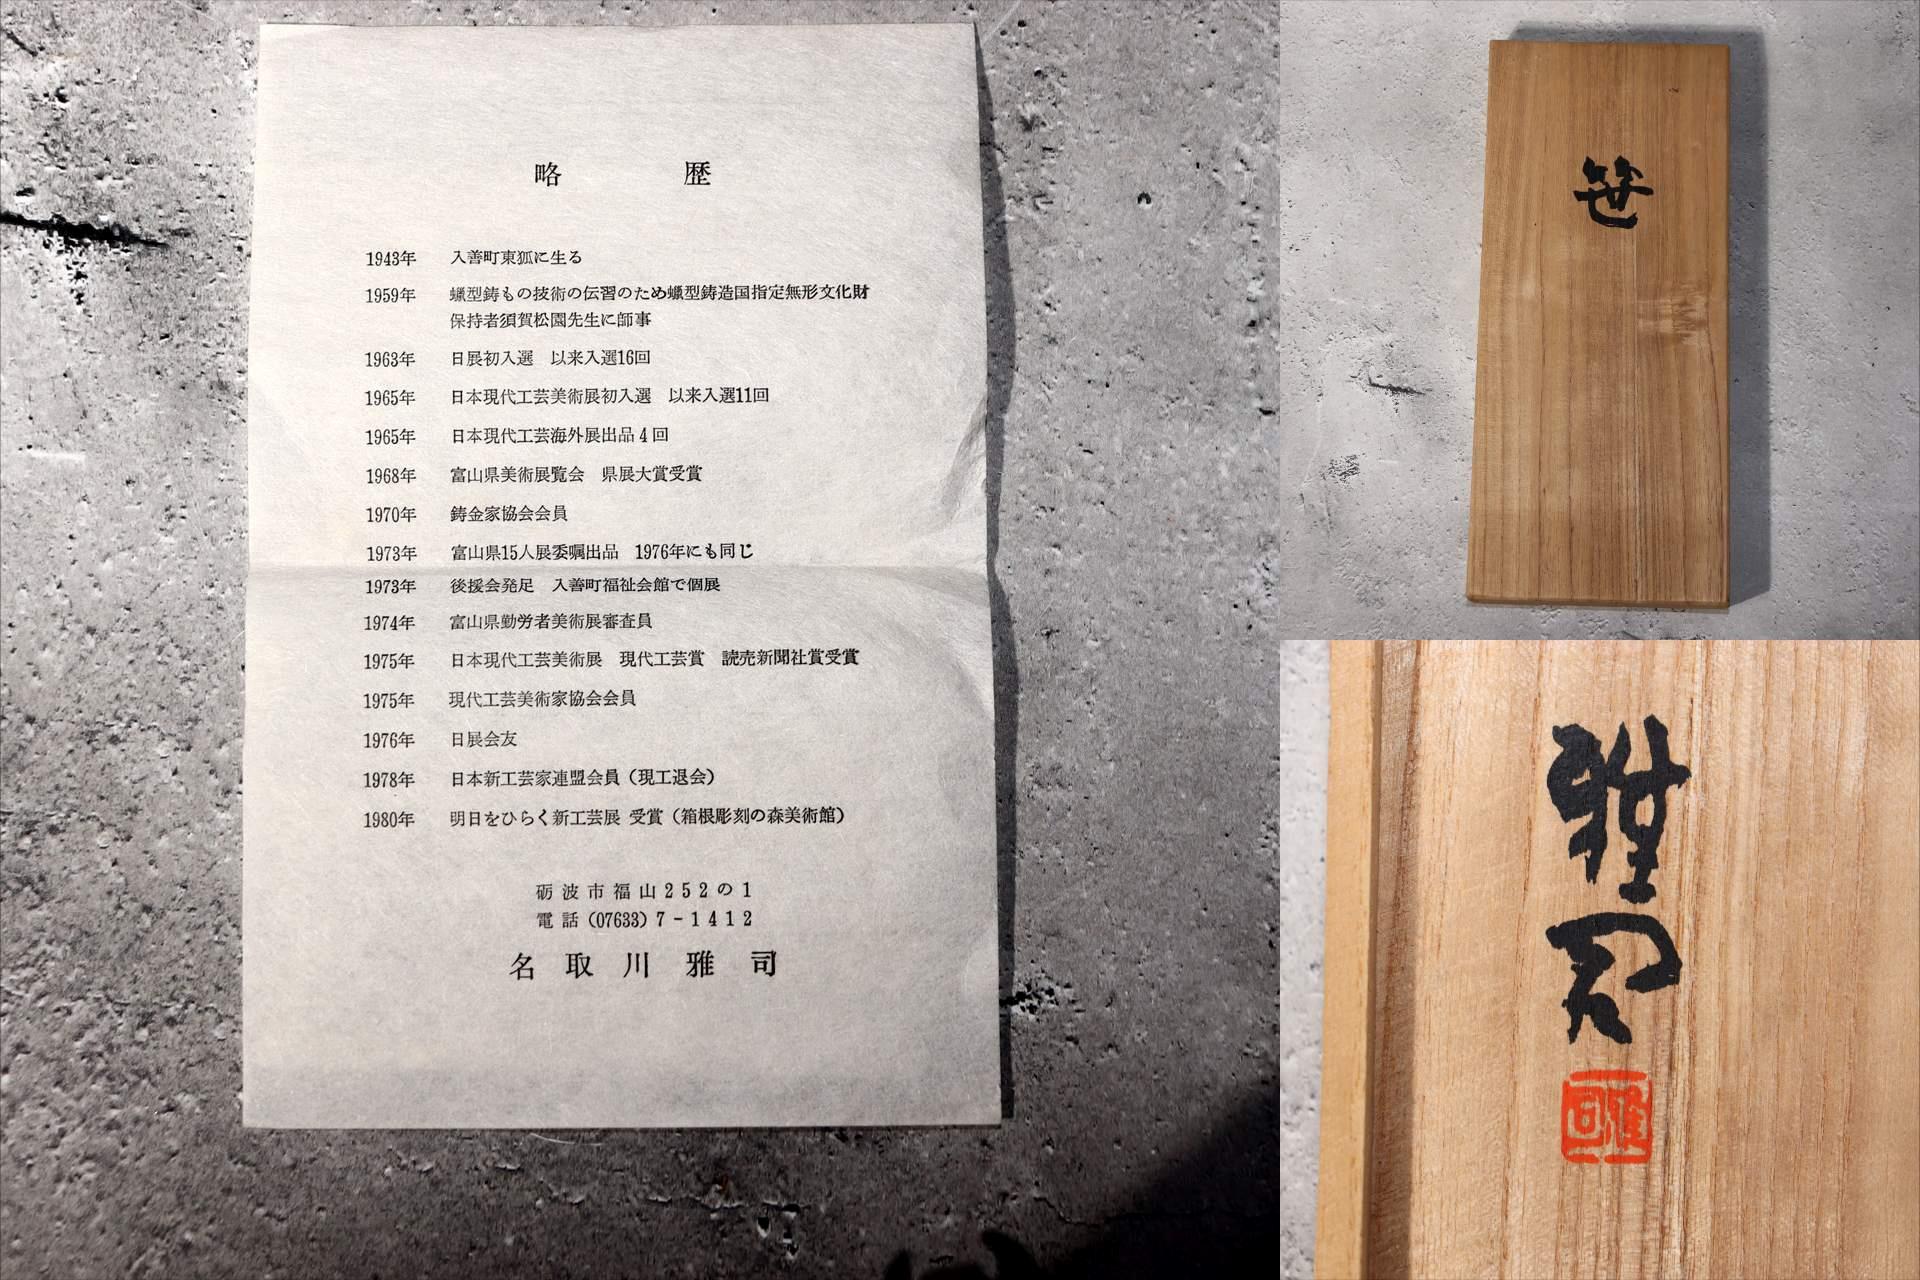 略歴
1943年 入善町東狐に生る
1959年 蠟型鋳もの技術の伝習のため蠟型鋳造国指定無形文化財
保持者須賀松園先生に師事
1963年 日展初入選 以来入選16回
1965年 日本現代工芸美術展初入選 以来入選11回
1965年 日本現代工芸海外展出品4回
1968年 富山県美術展覧会 県展大賞受賞
1970年 鋳金家協会会員
1973年 富山県15人展委嘱出品 1976年にも同じ
1973年 後援会発足 入善町福祉会館で個展
1974年 富山県勤労者美術展審査員
1975年 日本現代工芸美術展 現代工芸賞 読売新聞社賞受賞
1975年 現代工芸美術家協会会員
1976年 日展会友
1978年 日本新工芸家連盟会員(現工退会)
1980年 明日をひらく新工芸展 受賞(箱根彫刻の森美術館)
砺波市福山252の1
電話(07633)7-1412
名取川雅司
笹
雅司
雅司